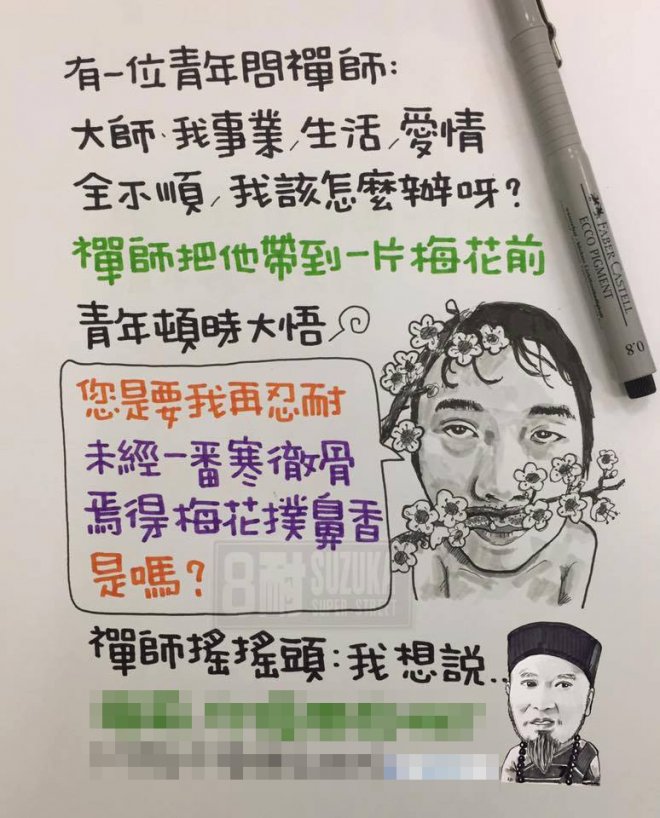 有一位青年問禪師:
大師、我事業,生活,愛情
全不順,我該怎麼辦呀?
禪師把他帶到一片梅花前
青年頓時大悟
您是要我再忍耐
未經一番寒徹骨
焉得梅花撲鼻香
是嗎?
禪師搖搖頭:我想説..
FABER-CASTELL
ECCO PIGMENT
0.8
8耐 SUZUKA
SUPER STREET